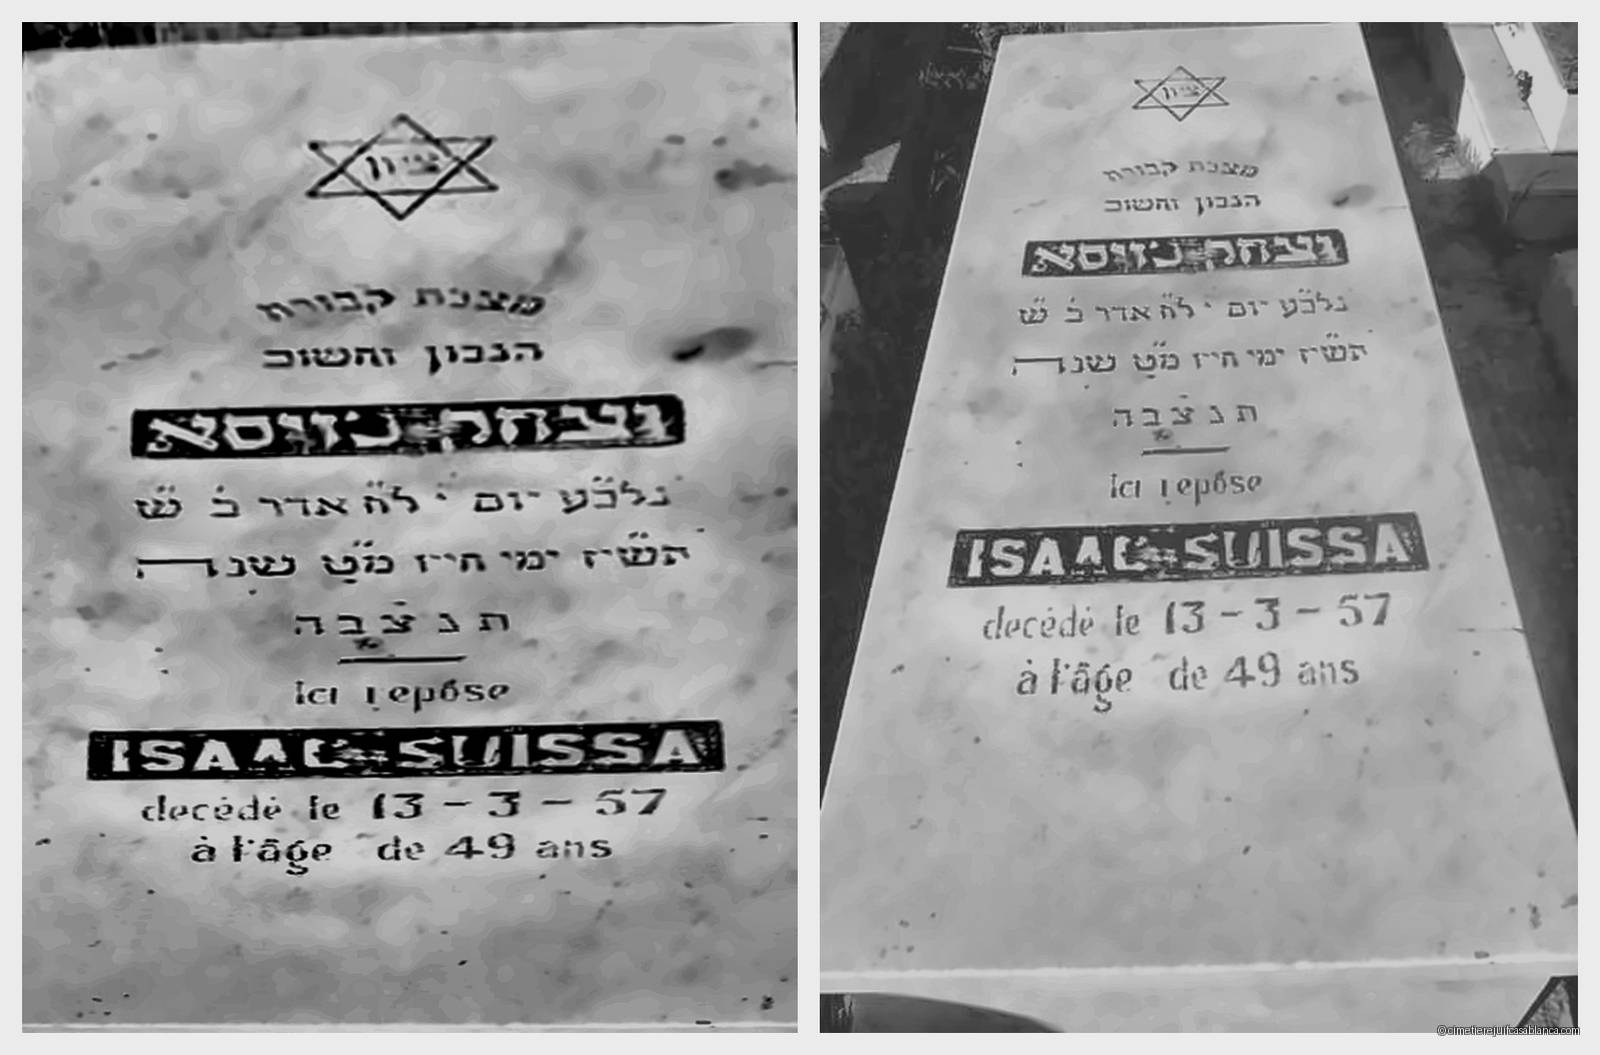 ציון
מצבת קבורת
הנבון וחשוב
יצחק סויסא
נלב״ע יום י׳ לח׳ אדר ב׳ ש׳
תשי״ז ימי חייו מ״ט שנה
תנצבה
Ici repose
ISAAC SUISSA
decédé le 13 - 3 - 57
à l'âge de 49 ans
ציון
מצבת קבורת
הנבון וחשוב
יצחק סויסא
נלב״ע יום י׳ לח׳ אדר ב׳ ש׳
תשי״ז ימי חייו מ״ט שנה
תנצבה
Ici repose
ISAAC SUISSA
decédé le 13 - 3 - 57
à l'âge de 49 ans
©cimetierejuifcasablanca.com